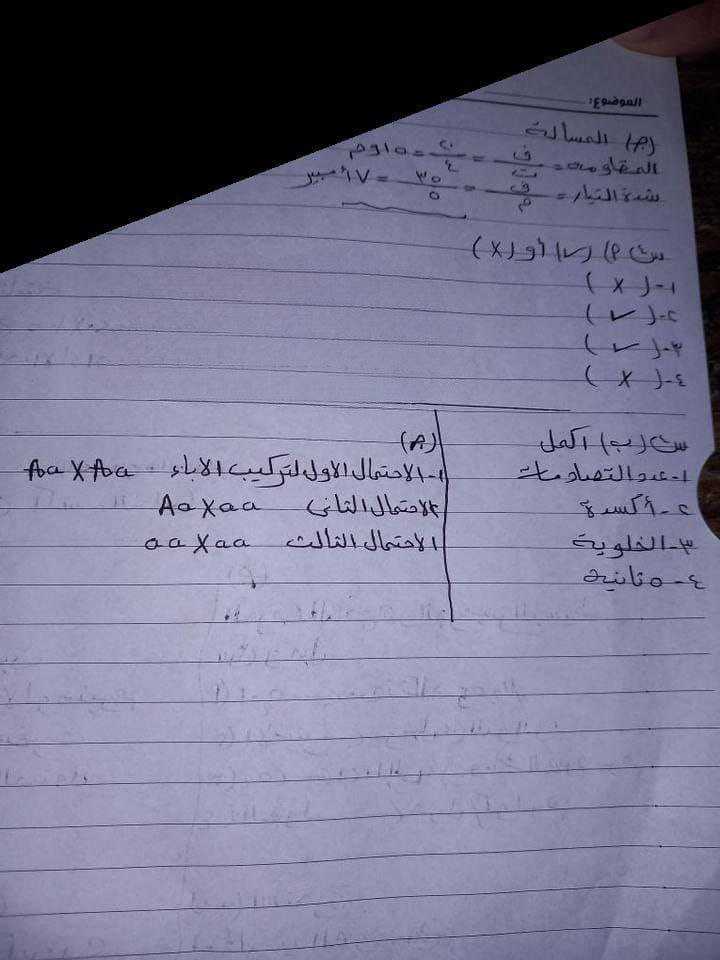 الموضوع:
(ج) المسألة
المقاومة = ف/ت = ٢٠/٤ = ٥ اوم
شدة التيار = ف/م = ٣٥/٥ = ٧ أمبير
س٤ م) (✓) أو (X)
١- ( X )
٢- ( ✓ )
٣- ( ✓ )
٤- ( X )
س٤ (ب) اكمل
١- عدد التصادمات
٢- أكسدة
٣- الخلوية
٤- ٥ ثانيه
(ج)
١- الاحتمال الاول لتركيب الاباء Aa X Aa
الاحتمال الثانى Aa X aa
الاحتمال الثالث aa X aa